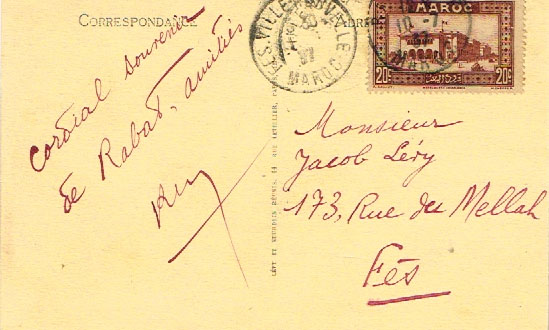 CORRESPONDANCE
Cordial souvenir
de Rabat, amitiés
ADRESSE
FES. VILLE NOUVELLE
30
MAROC
10
MAROC
20c
20c
Monsieur
Jacob Lévy
173, Rue du Mellah
Fès
LÉVY ET NEURDEIN RÉUNIS, 44 RUE LETELLIER, PARIS